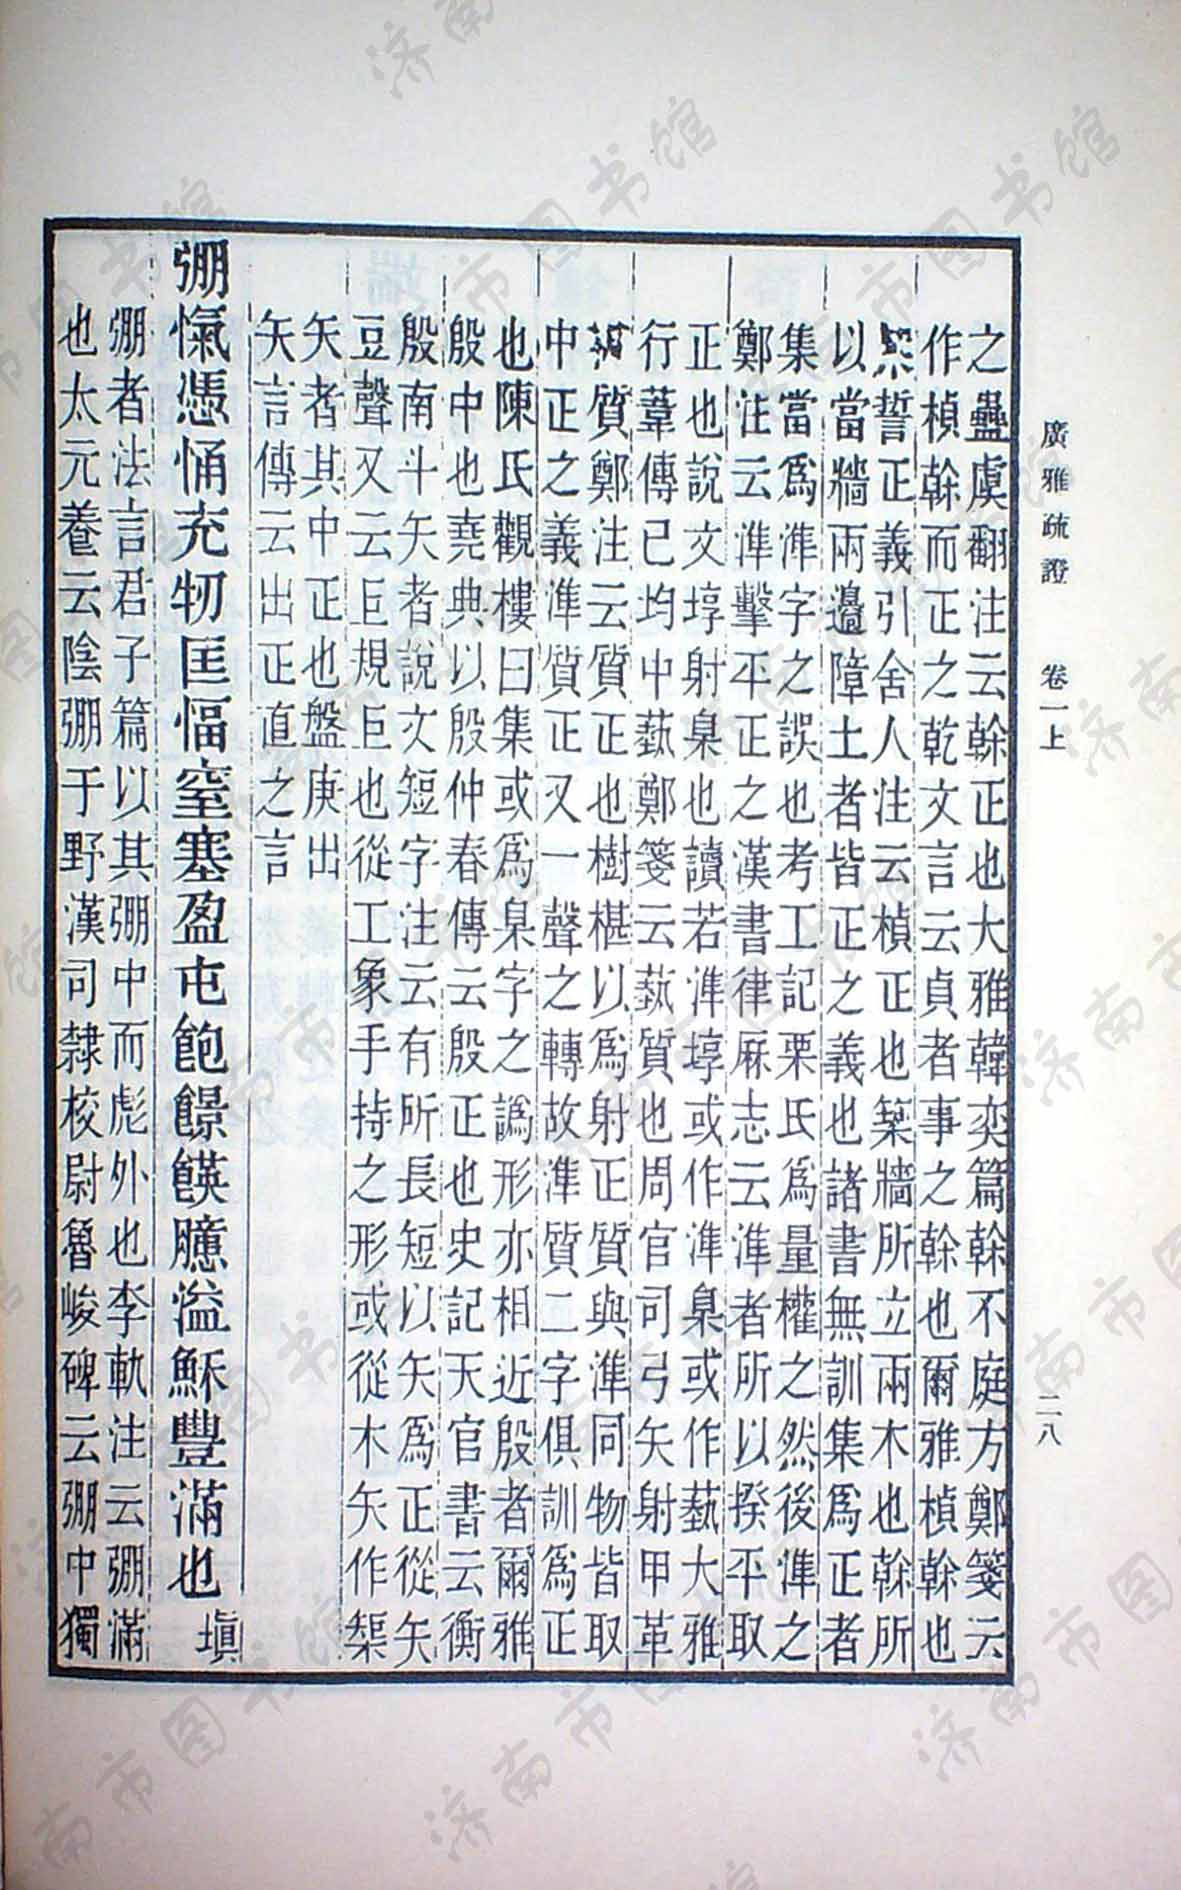 廣雅疏證　卷一上　二八
之蠱虞翻注云榦正也大雅韓奕篇榦不庭方鄭箋云
作楨榦而正之乾文言云貞者事之榦也爾雅楨榦也
誓正義引舍人注云楨正也築牆所立兩木也榦所
以當牆兩邊障土者皆正之義也諸書無訓集爲正者
集當爲準字之誤也考工記栗氏爲量權之然後準之
鄭注云準擊平正之漢書律厤志云準者所以揆平取
正也說文埻射臬也讀若準埻或作準臬或作藝大雅
行葦傳已均中蓺鄭箋云蓺質也周官司弓矢射甲革
質鄭注云質正也樹椹以爲射正質與準同物皆取
中正之義準質正又一聲之轉故準質二字俱訓爲正
也陳氏觀樓曰集或爲臬字之譌形亦相近殷者爾雅
殷中也堯典以殷仲春傳云殷正也史記天官書云衡
殷南斗矢者說文短字注云有所長短以矢爲正從矢
豆聲又云巨規巨也從工象手持之形或從木矢作榘
矢者其中正也盤庚出
矢言傳云出正直之言
弸愾憑悀充牣匡愊窒塞盈屯飽饛䭊臆溢穌豐滿也　塡
弸者法言君子篇以其弸中而彪外也李軌注云弸滿
也太元養云陰弸于野漢司隸校尉魯峻碑云弸中獨
济南市图书馆